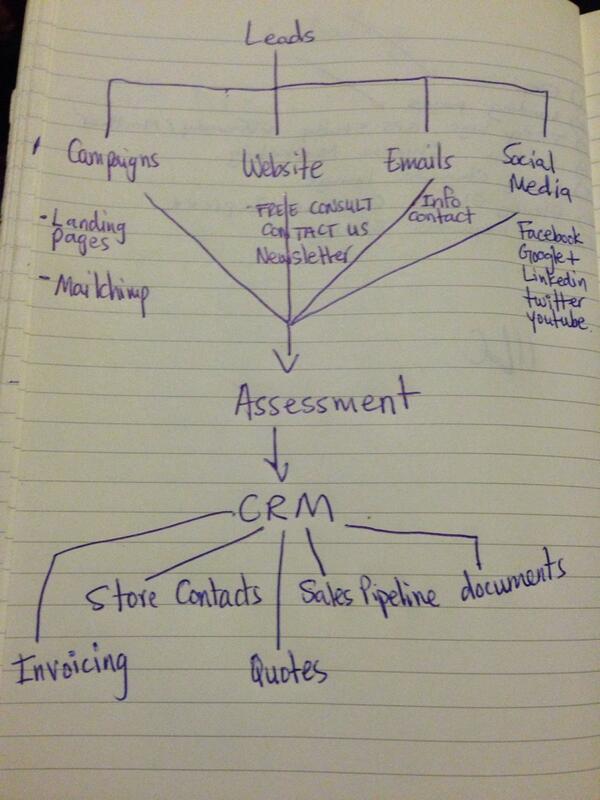 Leads
Campaigns
Website
Emails
Social
Media
- Landing
pages
- Mailchimp
- FREE CONSULT
CONTACT US
Newsletter
Info
contact
Facebook
Google+
Linkedin
twitter
youtube.
Assessment
CRM
Invoicing
Store Contacts
Quotes
Sales Pipeline
documents